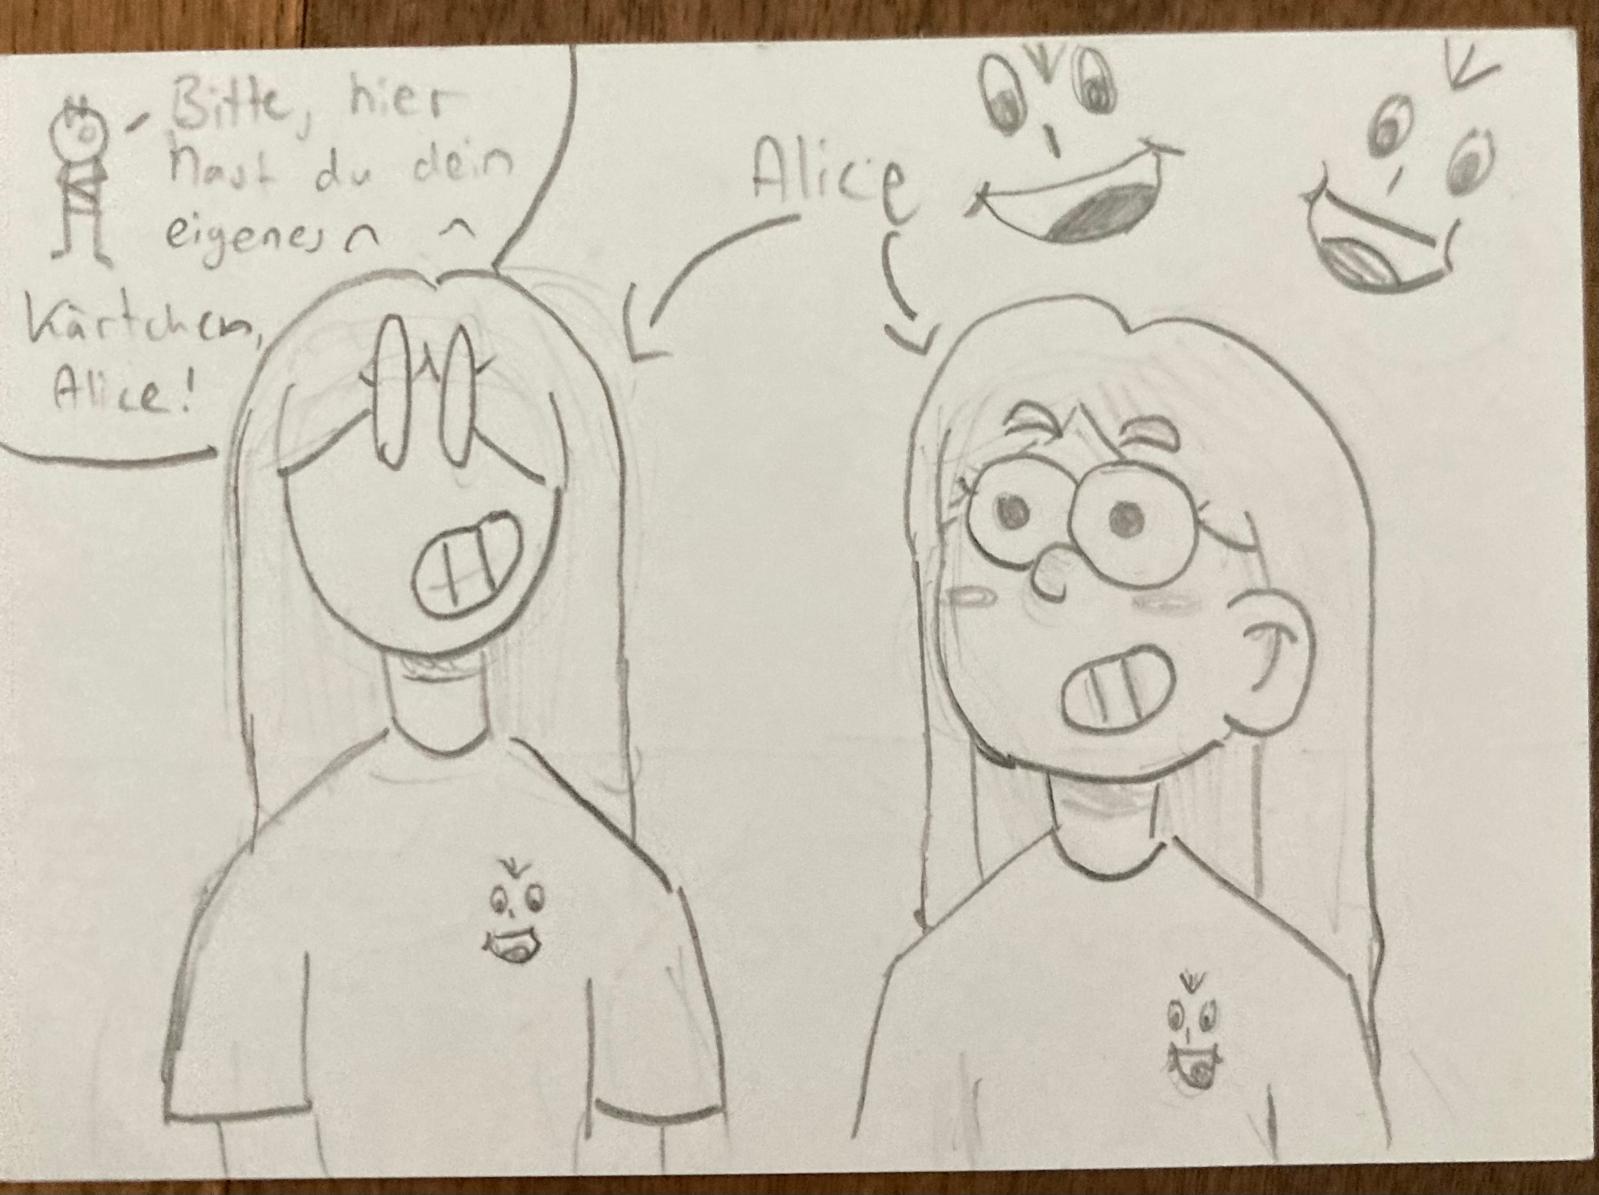 Bitte, hier
hast du dein
eigenes ^ ^
Kärtchen,
Alice!
Alice